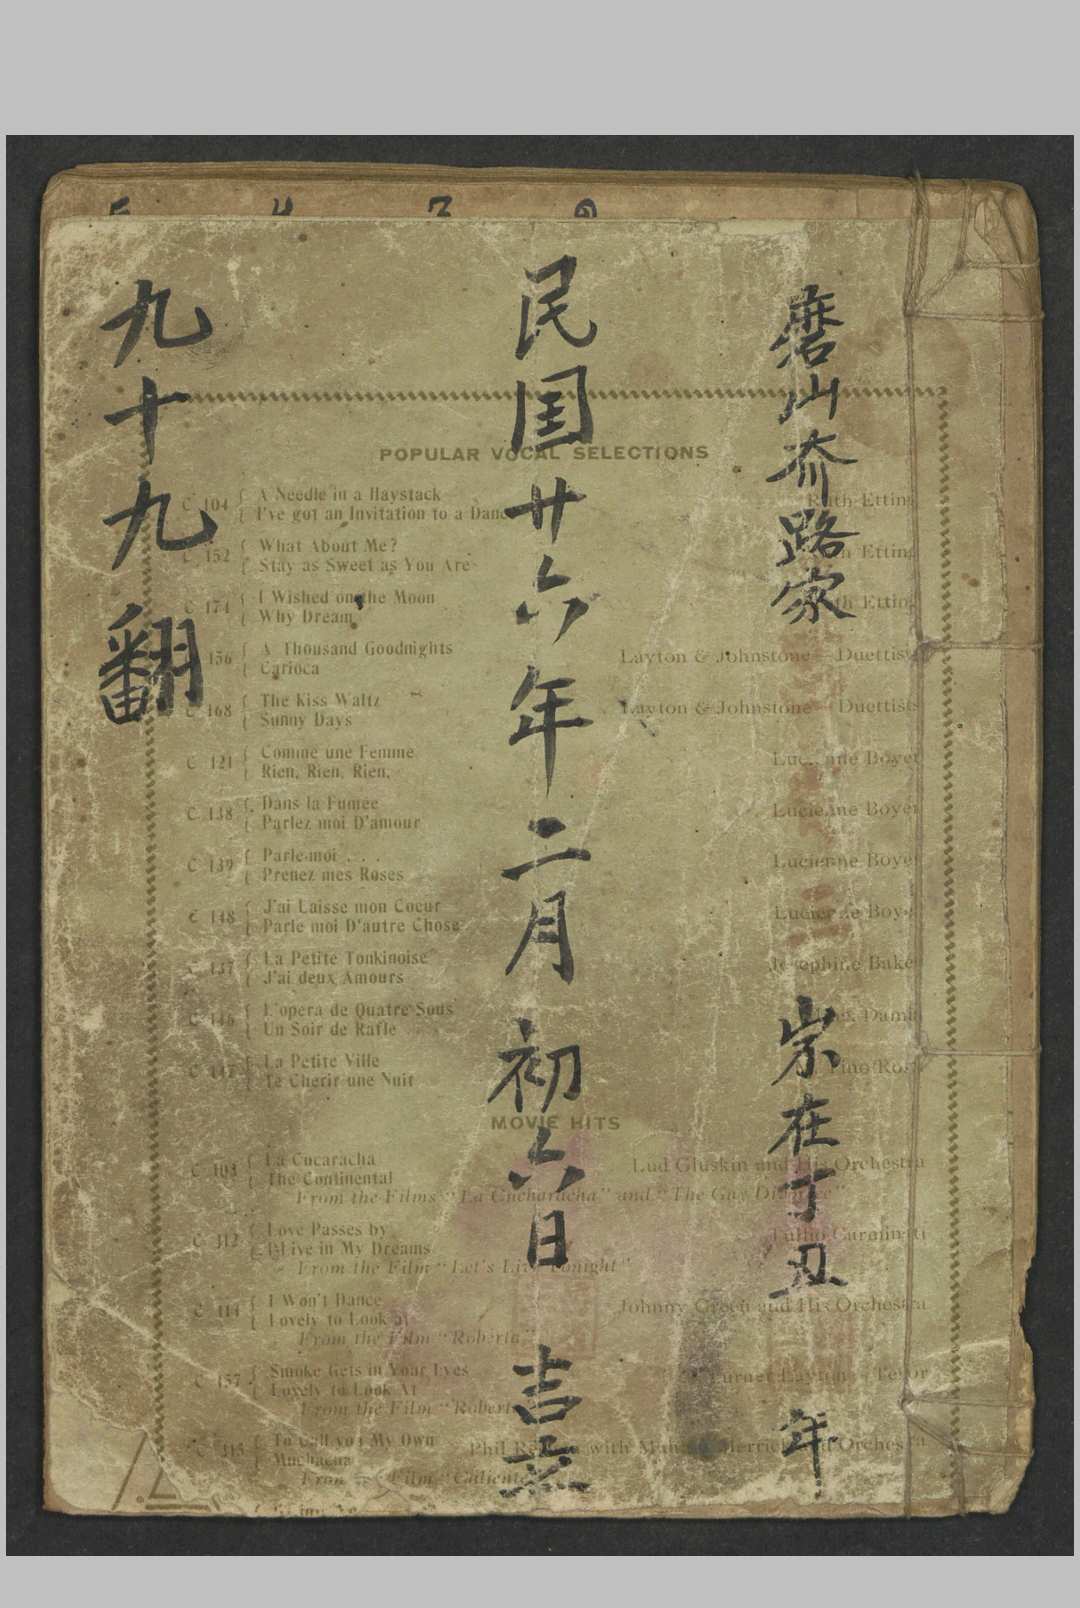 磨山齐路家 崇在丁丑年
民国廿六年二月初六日 吉立
九十九翻
POPULAR VOCAL SELECTIONS
C 104 { A Needle in a Haystack
{ I've got an Invitation to a Danc Ruth Etting
C 152 { What About Me?
{ Stay as Sweet as You Are Ruth Etting
C 174 { I Wished on the Moon
{ Why Dream Ruth Etting
156 { A Thousand Goodnights
{ Carioca Layton & Johnstone—Duettists
C 168 { The Kiss Waltz
{ Sunny Days Layton & Johnstone—Duettists
C 121 { Comme une Femme
{ Rien, Rien, Rien, Lucienne Boyer
C 138 { Dans la Fumée
{ Parlez moi D'amour Lucienne Boyer
C 139 { Parle-moi . . .
{ Prenez mes Roses Lucienne Boyer
C 148 { J'ai Laisse mon Coeur
{ Parle moi D'autre Chose Lucienne Boyer
C 137 { La Petite Tonkinoise
{ J'ai deux Amours Josephine Baker
C 146 { L'opera de Quatre Sous
{ Un Soir de Rafle Damia
C 147 { La Petite Ville
{ Te Cherir une Nuit Tino Rossi
MOVIE HITS
C 103 { La Cucaracha
{ The Continental Lud Gluskin and His Orchestra
From the Films "La Cucharacha" and "The Gay Divorcee"
C 312 { Love Passes by
{ I Live in My Dreams Tullio Carminati
From the Film "Let's Live Tonight"
C 114 { I Won't Dance
{ Lovely to Look at Johnny Green and His Orchestra
From the Film "Roberta"
C 157 { Smoke Gets in Your Eyes
{ Lovely to Look At Turner Layton—Tenor
From the Film "Roberta
C 315 { To Call you My Own
{ Muchacha Phil with Orchestra
From the Film "Caliente